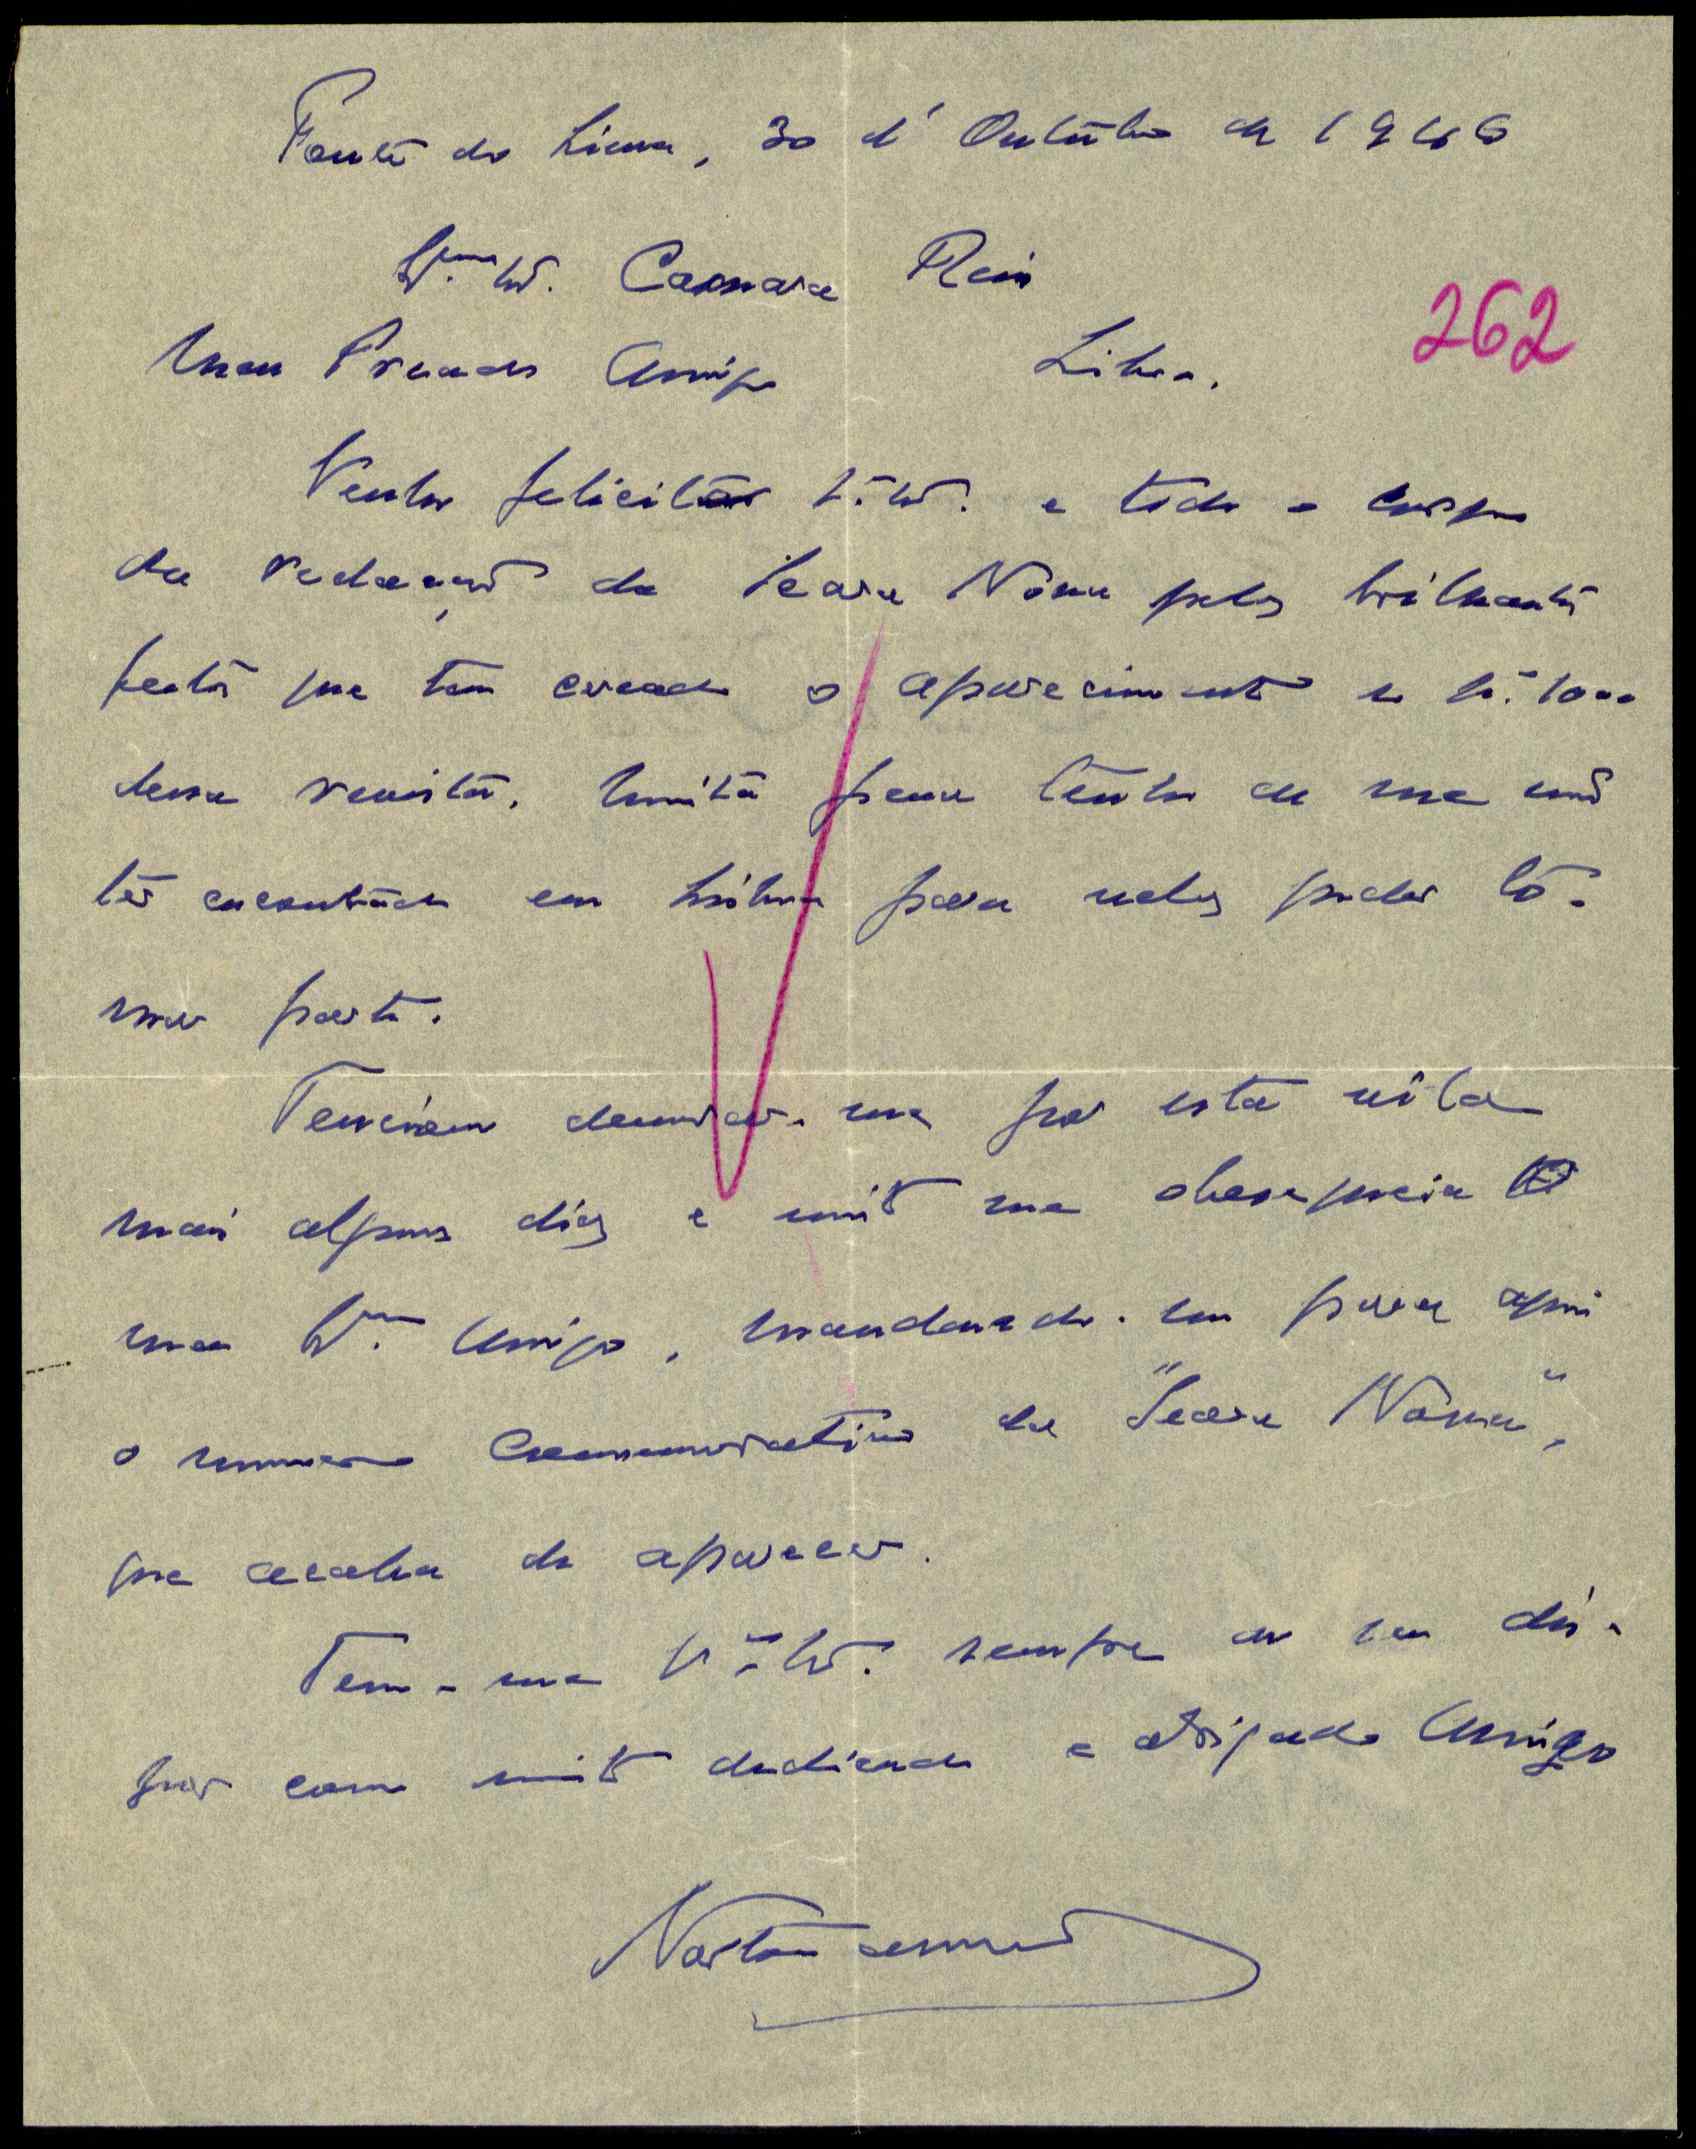 Ponte do Lima, 30 d'Outubro de 1946
Exmo Sr. Camara Reis
262
Meu Presado Amigo Lisboa.
Venho felicitar V. Exª. e todo o corpo
da redacção da Seara Nova pelas brilhantes
festas que tem o aparecimento do nº. 1000
dessa revista. Muita pena tenho de me não
ter encontrado em Lisboa para nelas poder to-
mar parte.
Tenciono demorar-me por esta vila
mais alguns dias e muito me obsequeia o
meu Exmo Amigo, mandando-me para aqui
o numero comemorativo da "Seara Nova",
que acaba de aparecer.
Tem-me V. Exª. sempre ao seu dis-
por como muito dedicado e obrigado Amigo
Norton de Matos